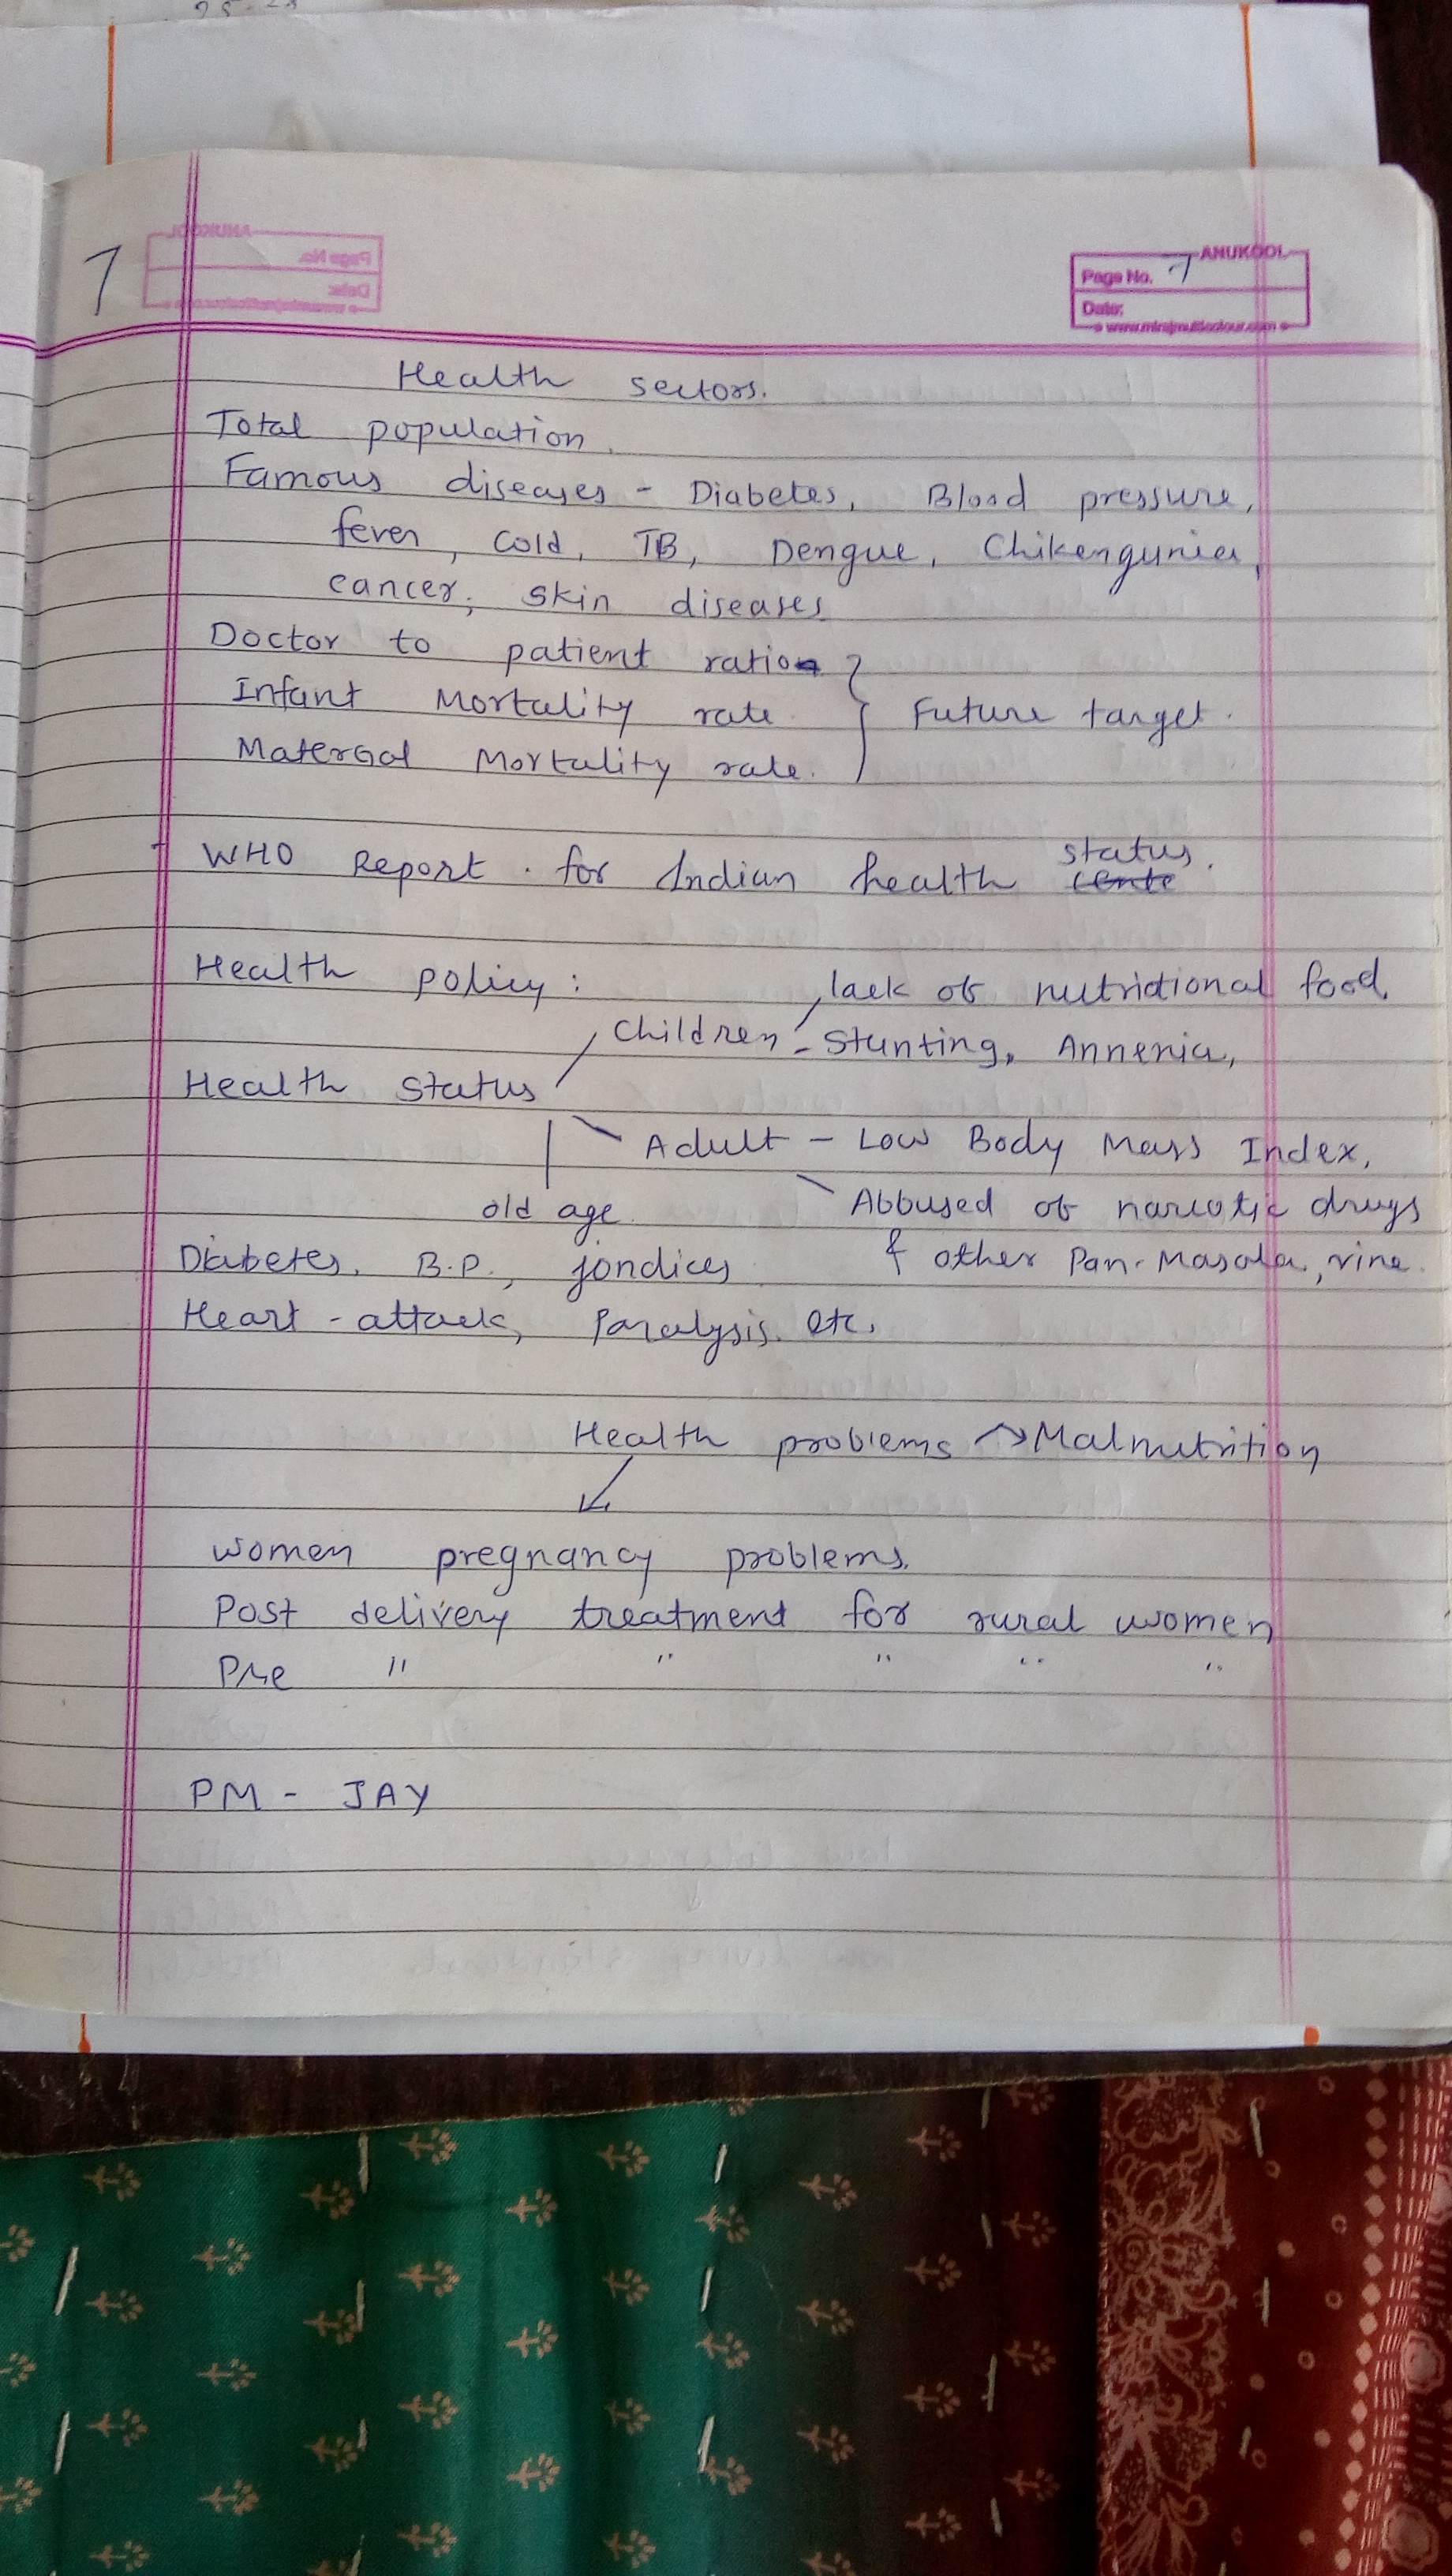 7
ANUKOOL
Page No. 7
Date:
www.mirajmulticolour.com
Health sectors.
Total population.
Famous diseases - Diabetes, Blood pressure,
fever, cold, TB, Dengue, Chikengunia,
cancer, skin diseases
Doctor to patient ratio
Infant Mortality rate } Future target.
Maternal Mortality rate.
WHO Report. for Indian health status.
Health policy:
lack of nutridional food,
Children - Stunting, Annenia,
Health status
Adult - Low Body Mass Index,
old age
Abbused of narcotic drugs
Diabetes, B.P., jondices
& other Pan-Masala, vine.
Heart-attack, Paralysis. etc.
Health problems → Malnutrition
women pregnancy problems.
Post delivery treatment for rural women
Pre " " " " "
PM - JAY